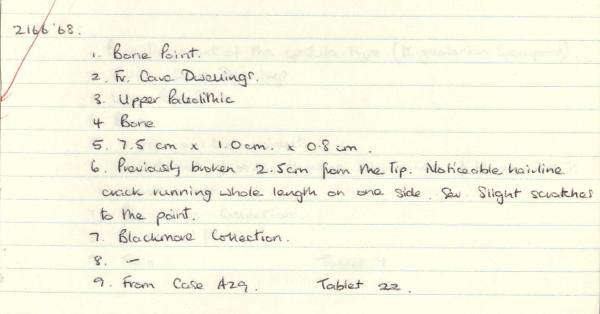 2166'68.
1. Bone Point.
2. Fr. Cave Dwellings.
3. Upper Paleolithic
4 Bone
5. 7.5 cm x 1.0 cm. x 0.8 cm.
6. Previously broken 2.5cm from the Tip. Noticeable hairline
crack running whole length on one side. Sev. Slight scratches
to the point.
7. Blackmore Collection.
8. —
9. From Case A29. Tablet 22.